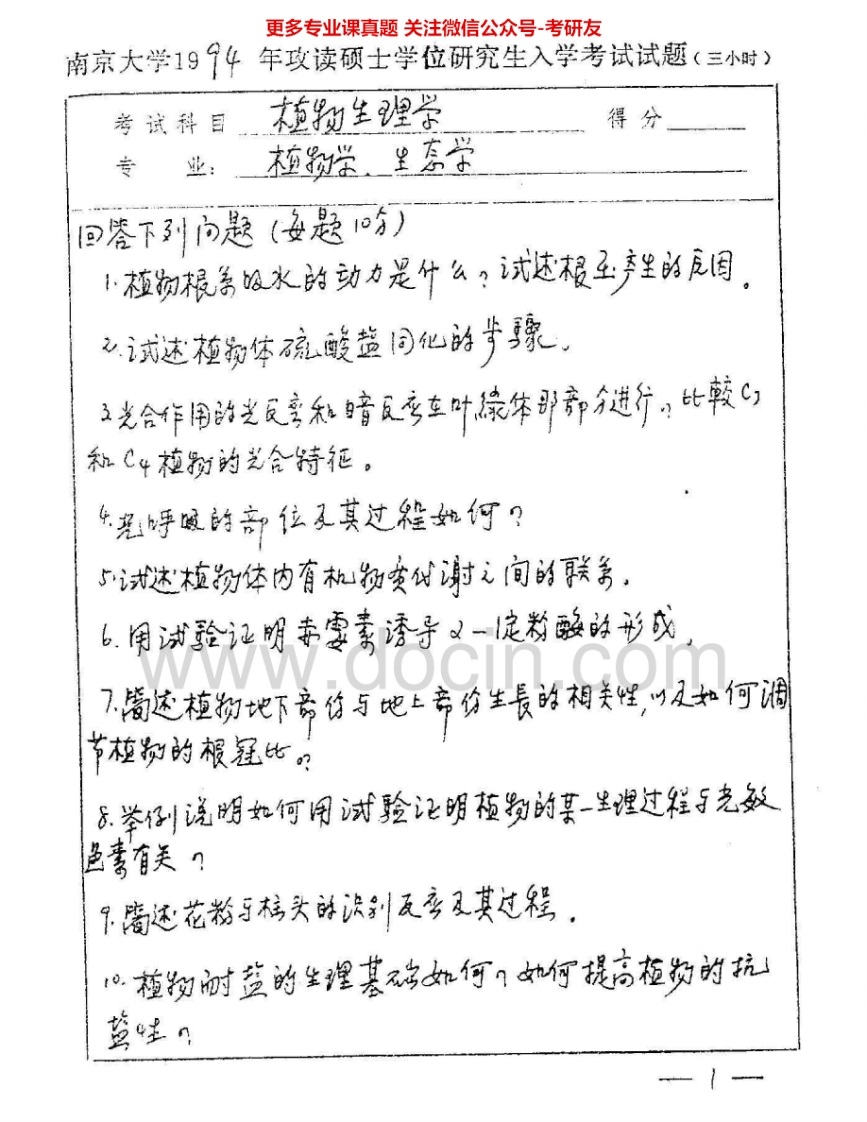 更多专业课真题 关注微信公众号-考研友
南京大学1994年攻读硕士学位研究生入学考试试题(三小时)
考试科目 植物生理学 得分
专 业: 植物学、生态学
回答下列问题(每题10分)
1.植物根系吸水的动力是什么?试述根压产生的原因。
2.试述植物体硫酸盐同化的步骤。
3.光合作用的光反应和暗反应在叶綠体那部分进行?比較C3
和C4植物的光合特征。
4.光呼吸的部位及其过程如何?
5.试述植物体内有机物质代谢之间的联系.
6.用试验证明赤霉素诱导α-淀粉酶的形成.
www.docin.com
7.简述植物地下部份与地上部份生長的相关性,以及如何调
节植物的根冠比。?
8.举例说明如何用试验证明植物的某一生理过程与光敏
色素有关?
9.简述花粉与柱头的识别反应及其过程.
10.植物耐盐的生理基础如何?如何提高植物的抗
盐性?
— 1 —